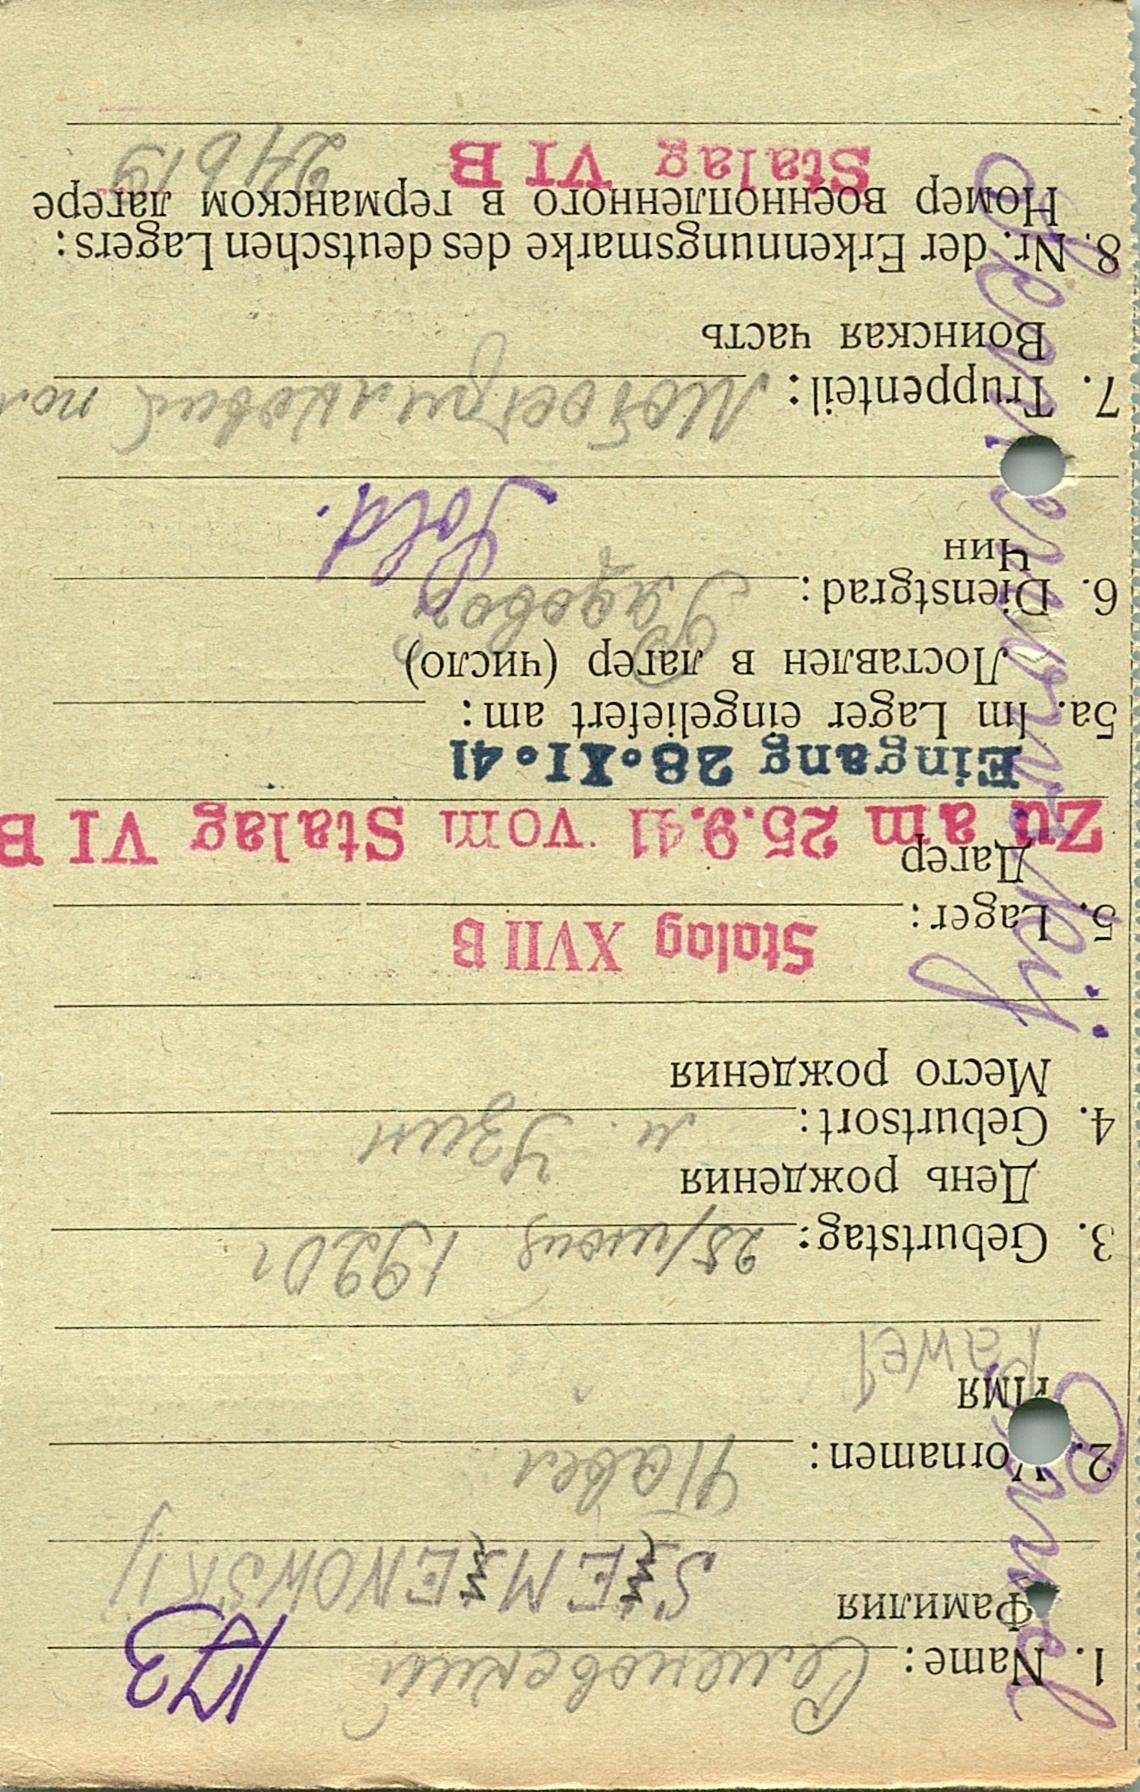 1. Name: Семеновский 173
Фамилия SEMENOWSKIJ
2. Vornamen: Павел
Имя Pawel
3. Geburtstag: 25/июня 1920г
День рождения
4. Geburtsort: м. Узин
Место рождения
5. Lager: Stalag XVII B
Лагер
Zu am 25.9.41 vom Stalag VI B
Eingang 28.XI.41
5a. Im Lager eingeliefert am:
Лоставлен в лагер (число)
6. Dienstgrad: Рядовой
Чин Sold.
7. Truppenteil: Мотострелковый пол
Воинская часть
8. Nr. der Erkennungsmarke des deutschen Lagers:
Номер военнопленного в германском лагере
Stalag VI B
Pawel